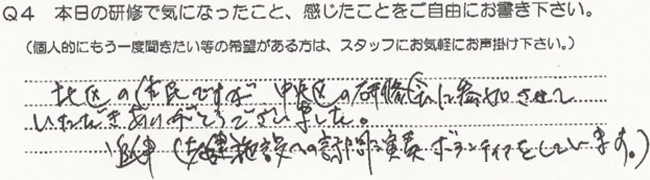 Q4 本日の研修で気になったこと、感じたことをご自由にお書き下さい。
(個人的にもう一度聞きたい等の希望がある方は、スタッフにお気軽にお声掛け下さい。)
北区の住民ですが 中央区の研修会に参加させて
いただきありがとうございました。
追伸 (老健施設への訪問演奏ボランティアをしています。)